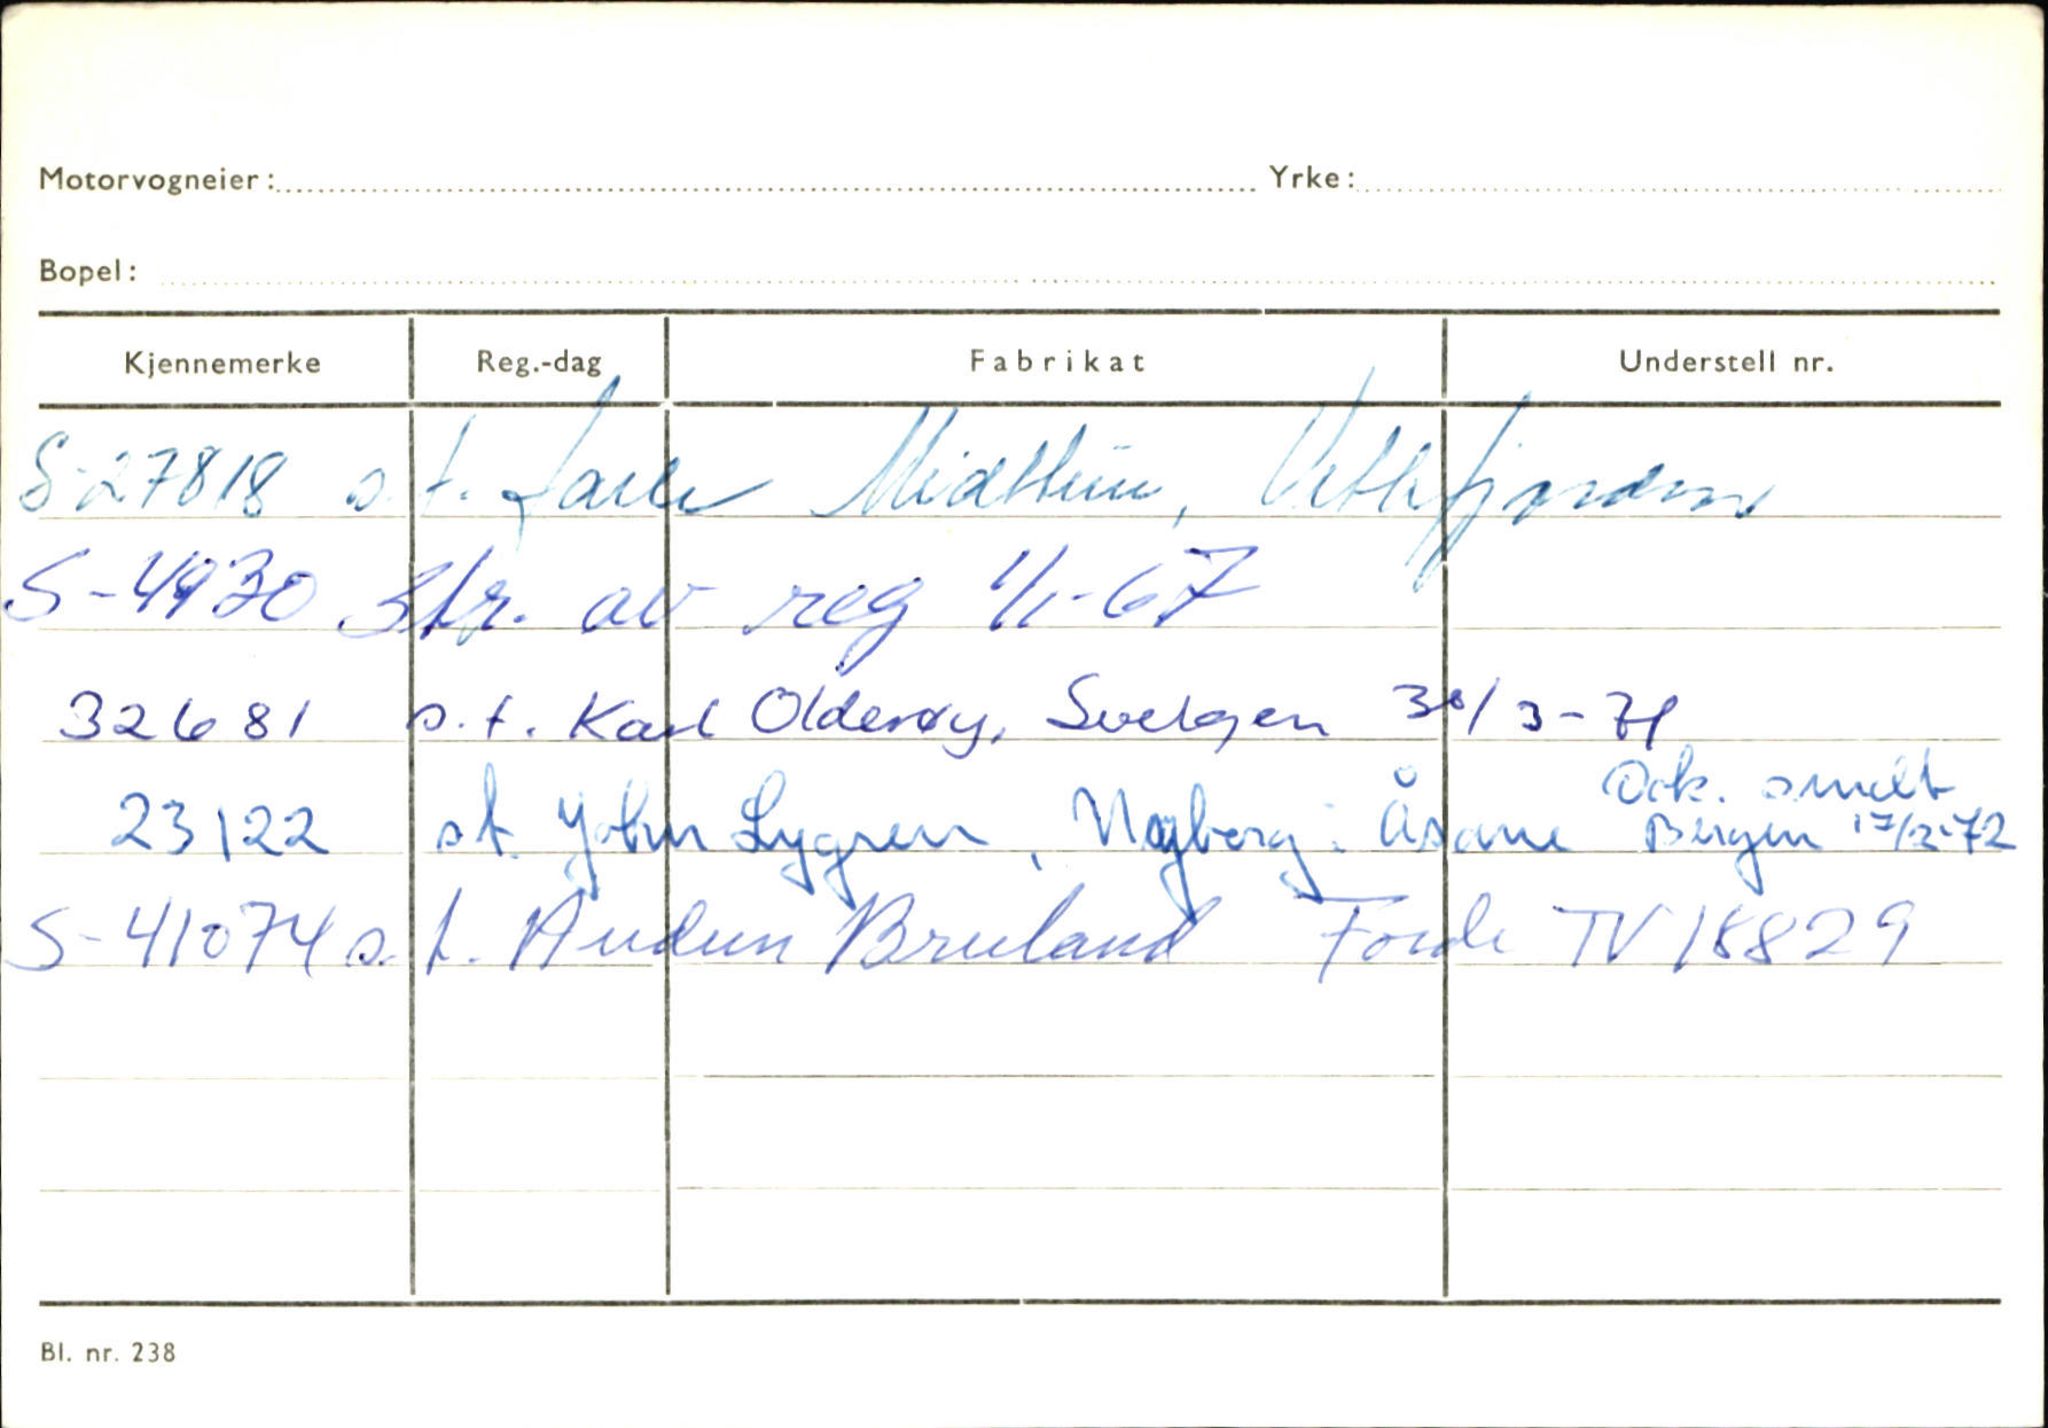 Motorvogneier: Yrke:
Bopel:
Kjennemerke Reg.-dag Fabrikat Understell nr.
S-27818 s.t. Jarle Midthun, Vetlefjorden
S-4930 str. av reg 1/1-67
32681 s.t. Karl Olderøy, Svelgen 30/3-71
Dek. sendt
23122 s.t. John Lygren, Nyborg i Åsane Bergen 17/2-72
S-41074 s.t. Audun Bruland Førde TV 18829
Bl. nr. 238